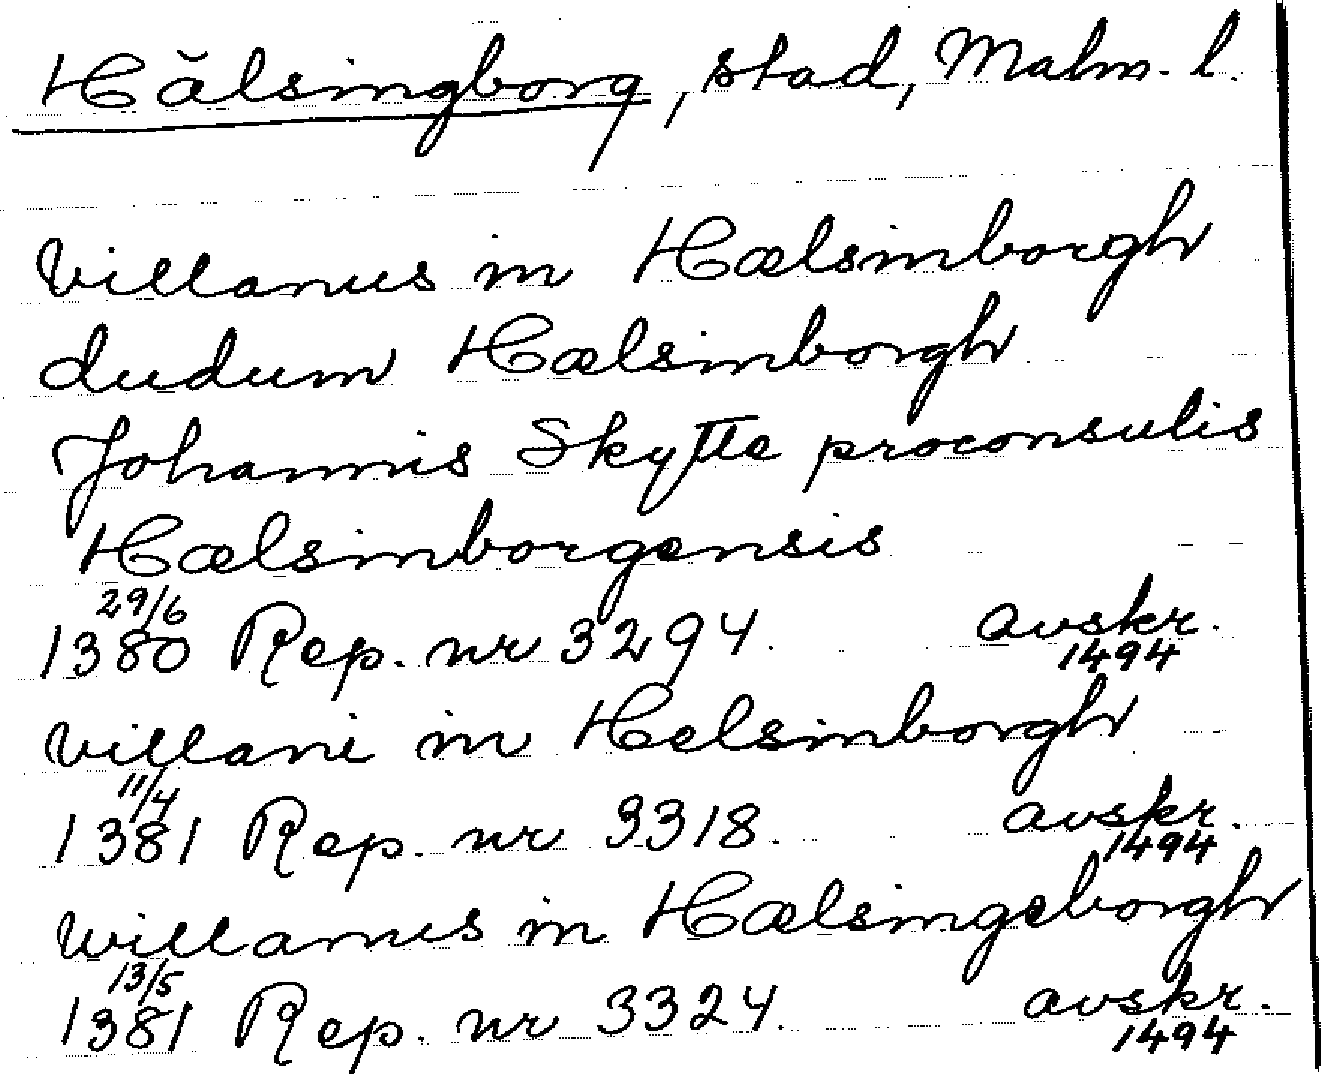 Hälsingborg, stad, Malm. l.
villanus in Hælsinborgh
dudum Hælsinborgh
Johannis Skytte proconsulis
Hælsinborgensis
29/6
1380 Rep. nr 3294. avskr.
1494
villani in Helsinborgh
11/4
1381 Rep. nr 3318. avskr.
1494
villanus in Hælsingeborgh
13/5
1381 Rep. nr 3324. avskr.
1494